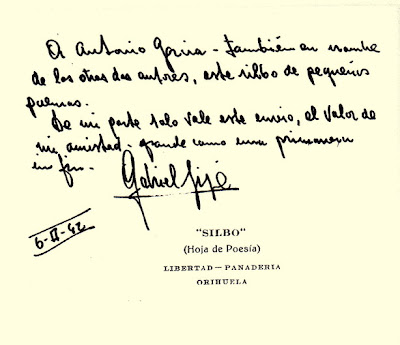 A Antonio - también en nombre
de los otros dos autores, este silbo de pequeños
poemas.
De mi parte solo vale este envio, el valor de
mi amistad. grande como una primavera
sin fin.
Gabriel Sijé
"SILBO"
(Hoja de Poesía)
LIBERTAD — PANADERIA
ORIHUELA
6-II-42